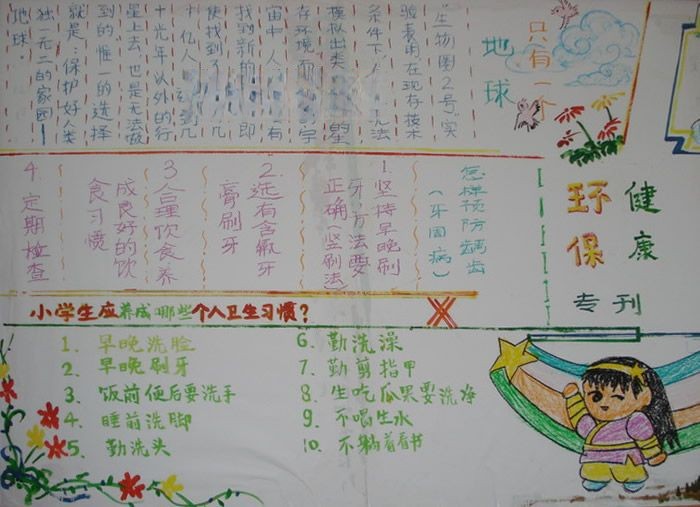 只有一个
地球
"生物圈2号"实
验表明在现存技术
条件下 法
模拟出类 的生
存环境而 宇
宙中人 有
找到新的 即
使找到了 几
十亿人 到几
十光年以外的行
星上去,也是无法做
到的惟一的选择
就是:保护好人类
独一无二的家园—
地球。
健康
环保
专刊
怎样预防龋齿
(牙周病)
1.坚持早晚刷
牙方法要
正确(竖刷法)
2.选有含氟牙
膏刷牙
3合理饮食养
成良好的饮
食习惯
4.定期检查
小学生应养成哪些个人卫生习惯?
1. 早晚洗脸
2. 早晚刷牙
3. 饭前便后要洗手
4. 睡前洗脚
5. 勤洗头
6. 勤洗澡
7. 勤剪指甲
8. 生吃瓜果要洗净
9. 不喝生水
10. 不躺着看书